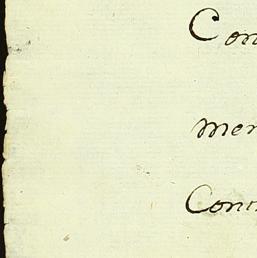 Con
men
Cont